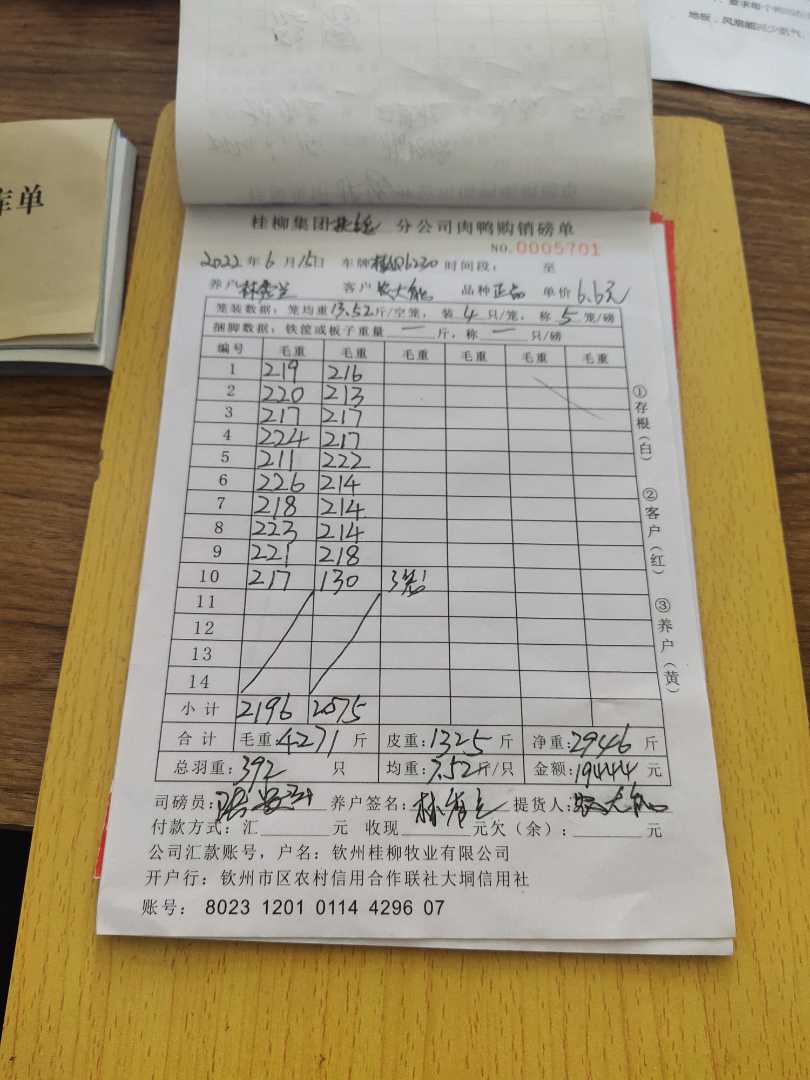 库单
地板，风扇能减少氨气
桂柳集团 分公司肉鸭购销磅单
NO. 0005701
2022年6月15日 车牌 6230 时间段： 至
养户 林秀兰 客户 农大能 品种 正品 单价 6.6元
笼装数据：笼均重13.52斤/空笼，装4只/笼，称5笼/磅
捆脚数据：铁筐或板子重量一斤，称一只/磅
编号 毛重 毛重 毛重 毛重 毛重 毛重
1 219 216
2 220 213
3 217 217
4 224 217
5 211 222
6 226 214
7 218 214
8 223 214
9 221 218
10 217 130 3笼
11
12
13
14
小计 2196 2075
合计 毛重：4271斤 皮重：1325斤 净重：2946斤
总羽重：392只 均重：7.52斤/只 金额：19444元
司磅员： 养户签名：林秀兰 提货人：农大能
付款方式：汇 元 收现 元欠（余）： 元
公司汇款账号，户名：钦州桂柳牧业有限公司
开户行：钦州市区农村信用合作联社大垌信用社
账号： 8023 1201 0114 4296 07
①存根（白）
②客户（红）
③养户（黄）